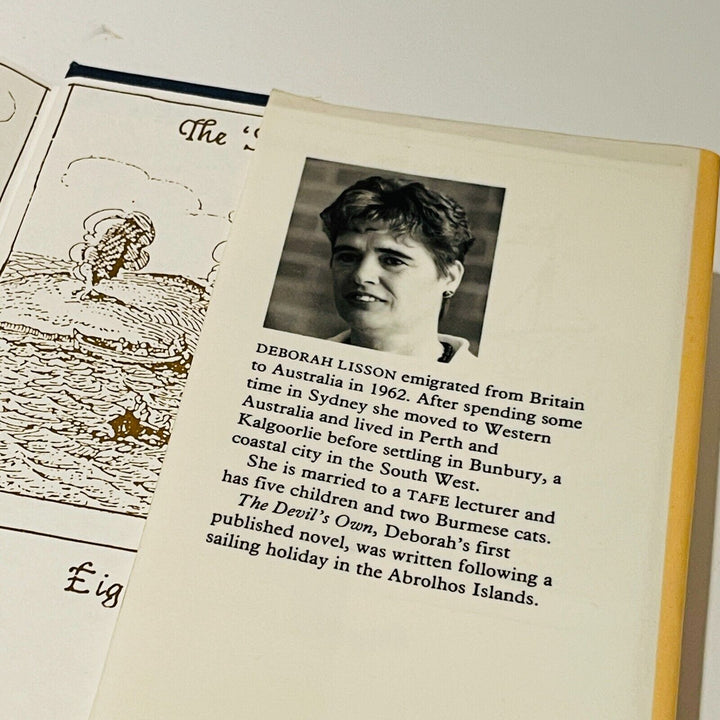 The 'S
DEBORAH LISSON emigrated from Britain
to Australia in 1962. After spending some
time in Sydney she moved to Western
Australia and lived in Perth and
Kalgoorlie before settling in Bunbury, a
coastal city in the South West.
She is married to a TAFE lecturer and
has five children and two Burmese cats.
The Devil's Own, Deborah's first
published novel, was written following a
sailing holiday in the Abrolhos Islands.
Eig